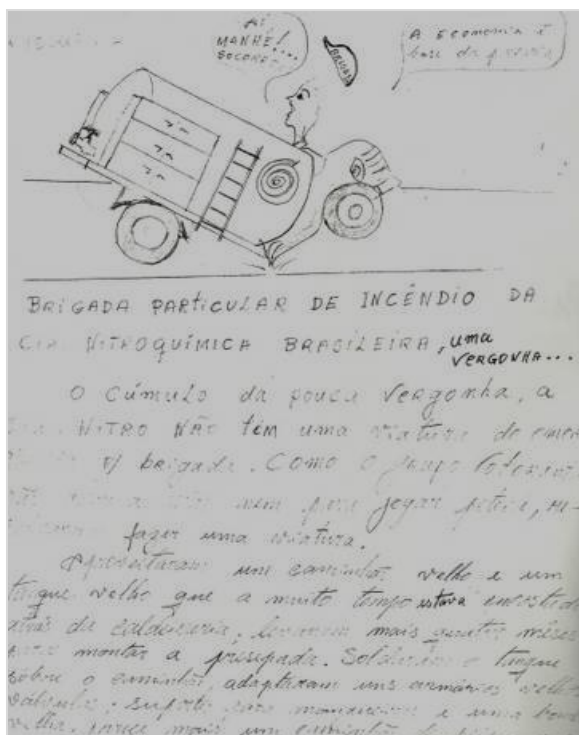 AÍ
MANHÊ!...
SOCORR
BRIGADA
A ECONOMIA É
base da
BRIGADA PARTICULAR DE INCÊNDIO DA
CIA NITROQUÍMICA BRASILEIRA, uma
VERGONHA...
O CÚMULO da pouca vergonha, a
NITRO NÃO têm uma viatura de emer
p/ brigada. Como o grupo Votoran
nem para jogar peteca, re-
fazer uma viatura.
Aproveitaram um caminhão velho e um
tanque velho que a muito tempo estava encostado
atrás da caldeiraria, levaram mais quatro meses
para montar a presepada. Soldaram o tanque
sobre o caminhão, adaptaram uns armários velhos
válvulas, suporte para mangueiras e uma bomba
velha, parece mais um caminhão de